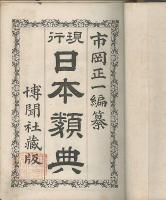 市岡正一編纂
現行
日本類典
博聞社藏版